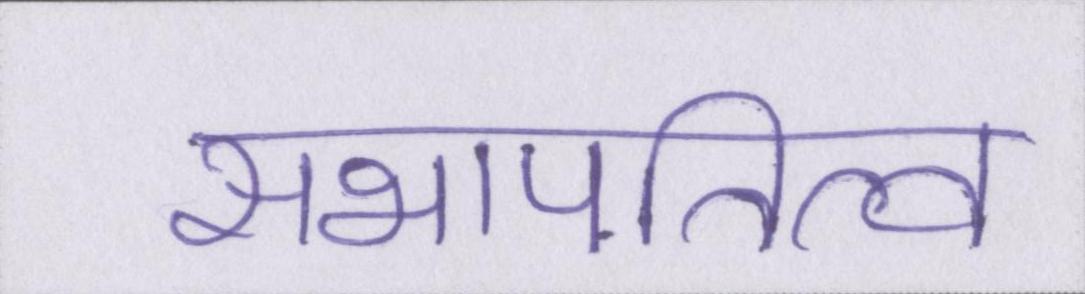 सभापतित्व